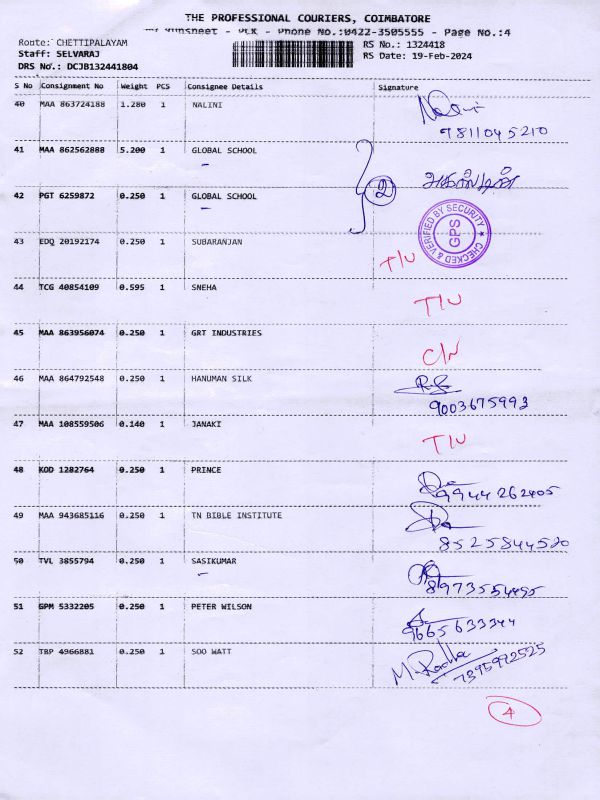 THE PROFESSIONAL COURIERS, COIMBATORE
Phone No.:0422-3505555 - Page No.:4
Route: CHETTIPALAYAM RS No.: 1324418
Staff: SELVARAJ RS Date: 19-Feb-2024
DRS No.: DCJB132441804
S No Consignment No Weight PCS Consignee Details Signature
40 MAA 863724188 1.280 1 NALINI
9811045210
41 MAA 862562888 5.200 1 GLOBAL SCHOOL
2
42 PGT 6259872 0.250 1 GLOBAL SCHOOL
CHECKED & VERIFIED BY SECURITY
GPS
43 EDQ 20192174 0.250 1 SUBARANJAN
T/U
44 TCG 40854109 0.595 1 SNEHA
T/U
45 MAA 863956074 0.250 1 GRT INDUSTRIES
C/N
46 MAA 864792548 0.250 1 HANUMAN SILK
9003675993
47 MAA 108559506 0.140 1 JANAKI
T/U
48 KOD 1282764 0.250 1 PRINCE
9944262405
49 MAA 943685116 0.250 1 TN BIBLE INSTITUTE
8525844520
50 TVL 3855794 0.250 1 SASIKUMAR
51 GPM 5332205 0.250 1 PETER WILSON
9665633344
52 TBP 4966881 0.250 1 SOO WATT
M. Radha
7395972525
4